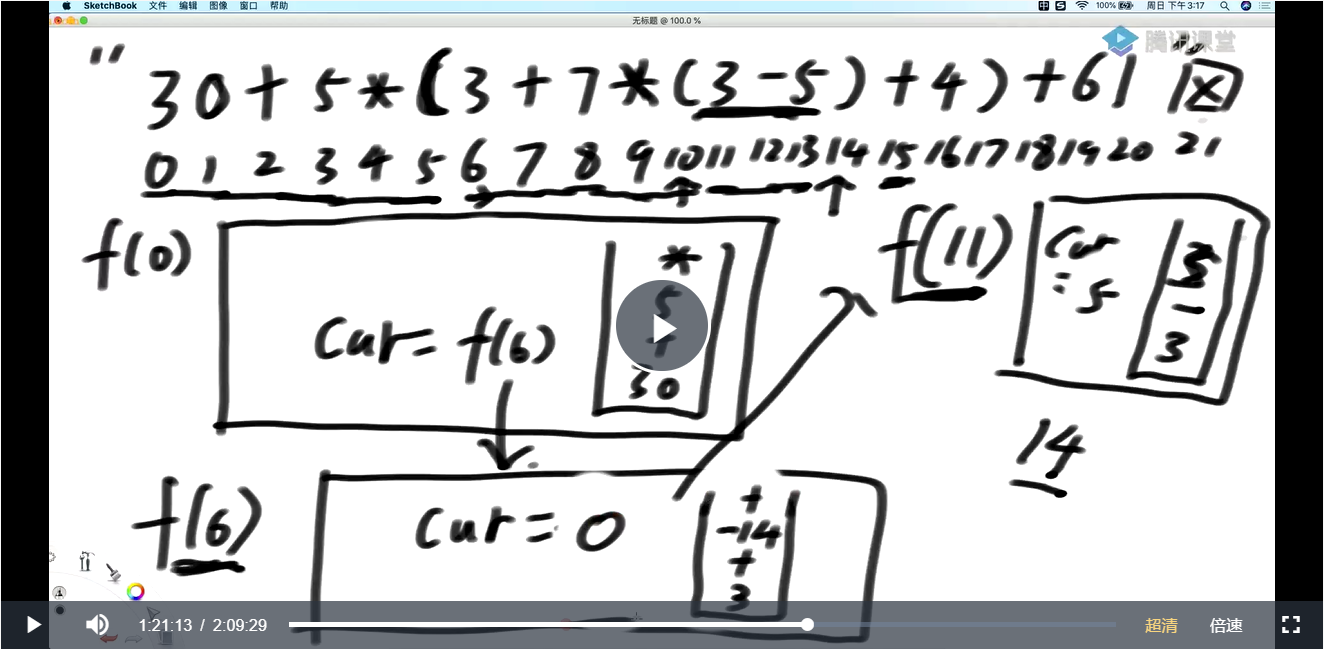 SketchBook 文件 编辑 图像 窗口 帮助 100% 周日 下午3:17
无标题 @ 100.0 %
腾讯课堂
" 30+5*(3+7*(3-5)+4)+61 "
0 1 2 3 4 5 6 7 8 9 10 11 12 13 14 15 16 17 18 19 20 21
f(0)
*
5
+
30
cur= f(6)
f(11)
cur
: 5
-
3
14
f(6)
cur= 0
+
-14
+
3
1:21:13 / 2:09:29 超清 倍速